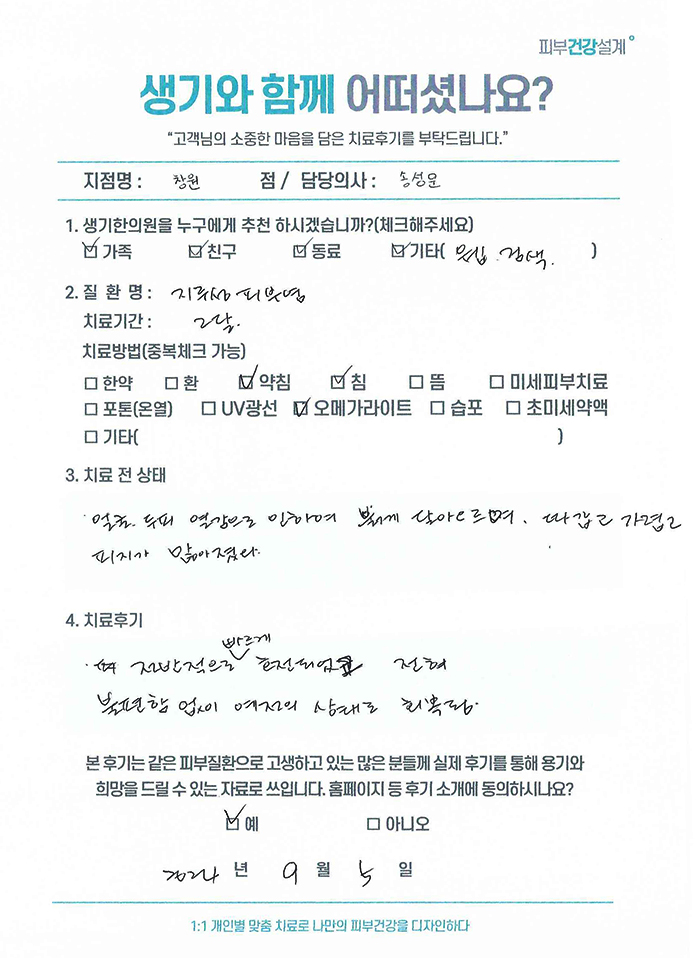 피부건강설계
생기와 함께 어떠셨나요?
“고객님의 소중한 마음을 담은 치료후기를 부탁드립니다.”
지점명 : 창원 점 / 담당의사 : 송성문
1. 생기한의원을 누구에게 추천 하시겠습니까?(체크해주세요)
☑ 가족 ☑ 친구 ☑ 동료 ☑ 기타( 모임. 검색. )
2. 질 환 명 : 지루성 피부염
치료기간 : 2달.
치료방법(중복체크 가능)
☐ 한약 ☐ 환 ☑ 약침 ☑ 침 ☐ 뜸 ☐ 미세피부치료
☐ 포톤(온열) ☐ UV광선 ☑ 오메가라이트 ☐ 습포 ☐ 초미세약액
☐ 기타( )
3. 치료 전 상태
얼굴. 두피 열감으로 인하여 붉게 달아오르며. 따갑고 가렵고
피지가 많아졌다.
4. 치료후기
전반적으로 빠르게 호전되었고 전혀
불편함 없이 예전의 상태로 회복됨.
본 후기는 같은 피부질환으로 고생하고 있는 많은 분들께 실제 후기를 통해 용기와
희망을 드릴 수 있는 자료로 쓰입니다. 홈페이지 등 후기 소개에 동의하시나요?
☑ 예 ☐ 아니오
2024 년 9 월 5 일
1:1 개인별 맞춤 치료로 나만의 피부건강을 디자인하다